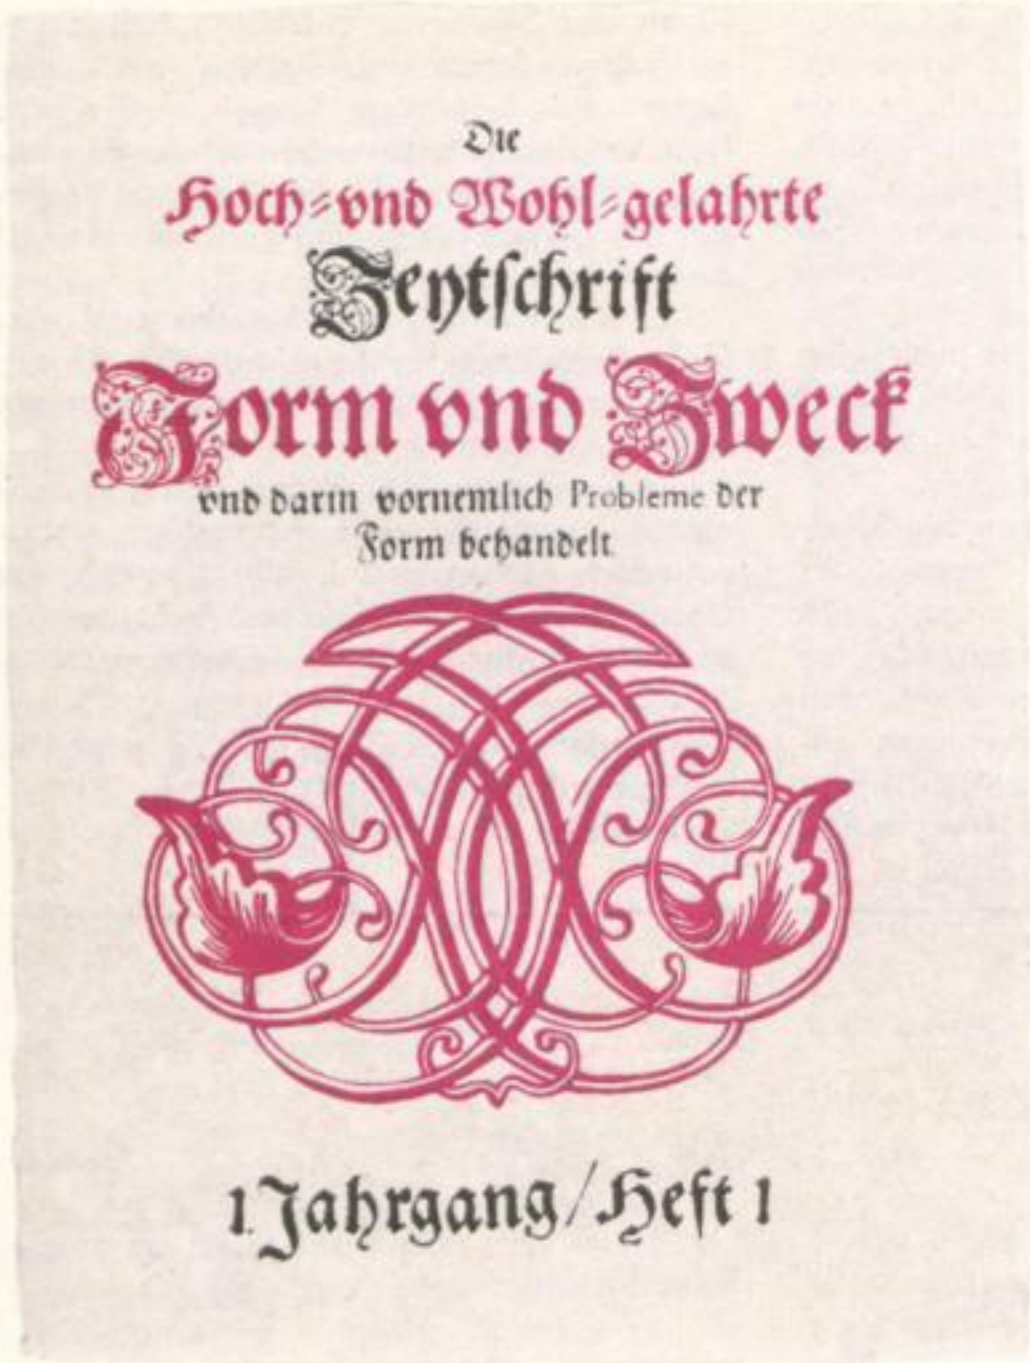 Die
Hoch-vnd Wohl-gelahrte
Zeytſchrift
Form vnd Zweck
vnd darin vornemlich Probleme der
Form behandelt
1. Jahrgang/Heft 1